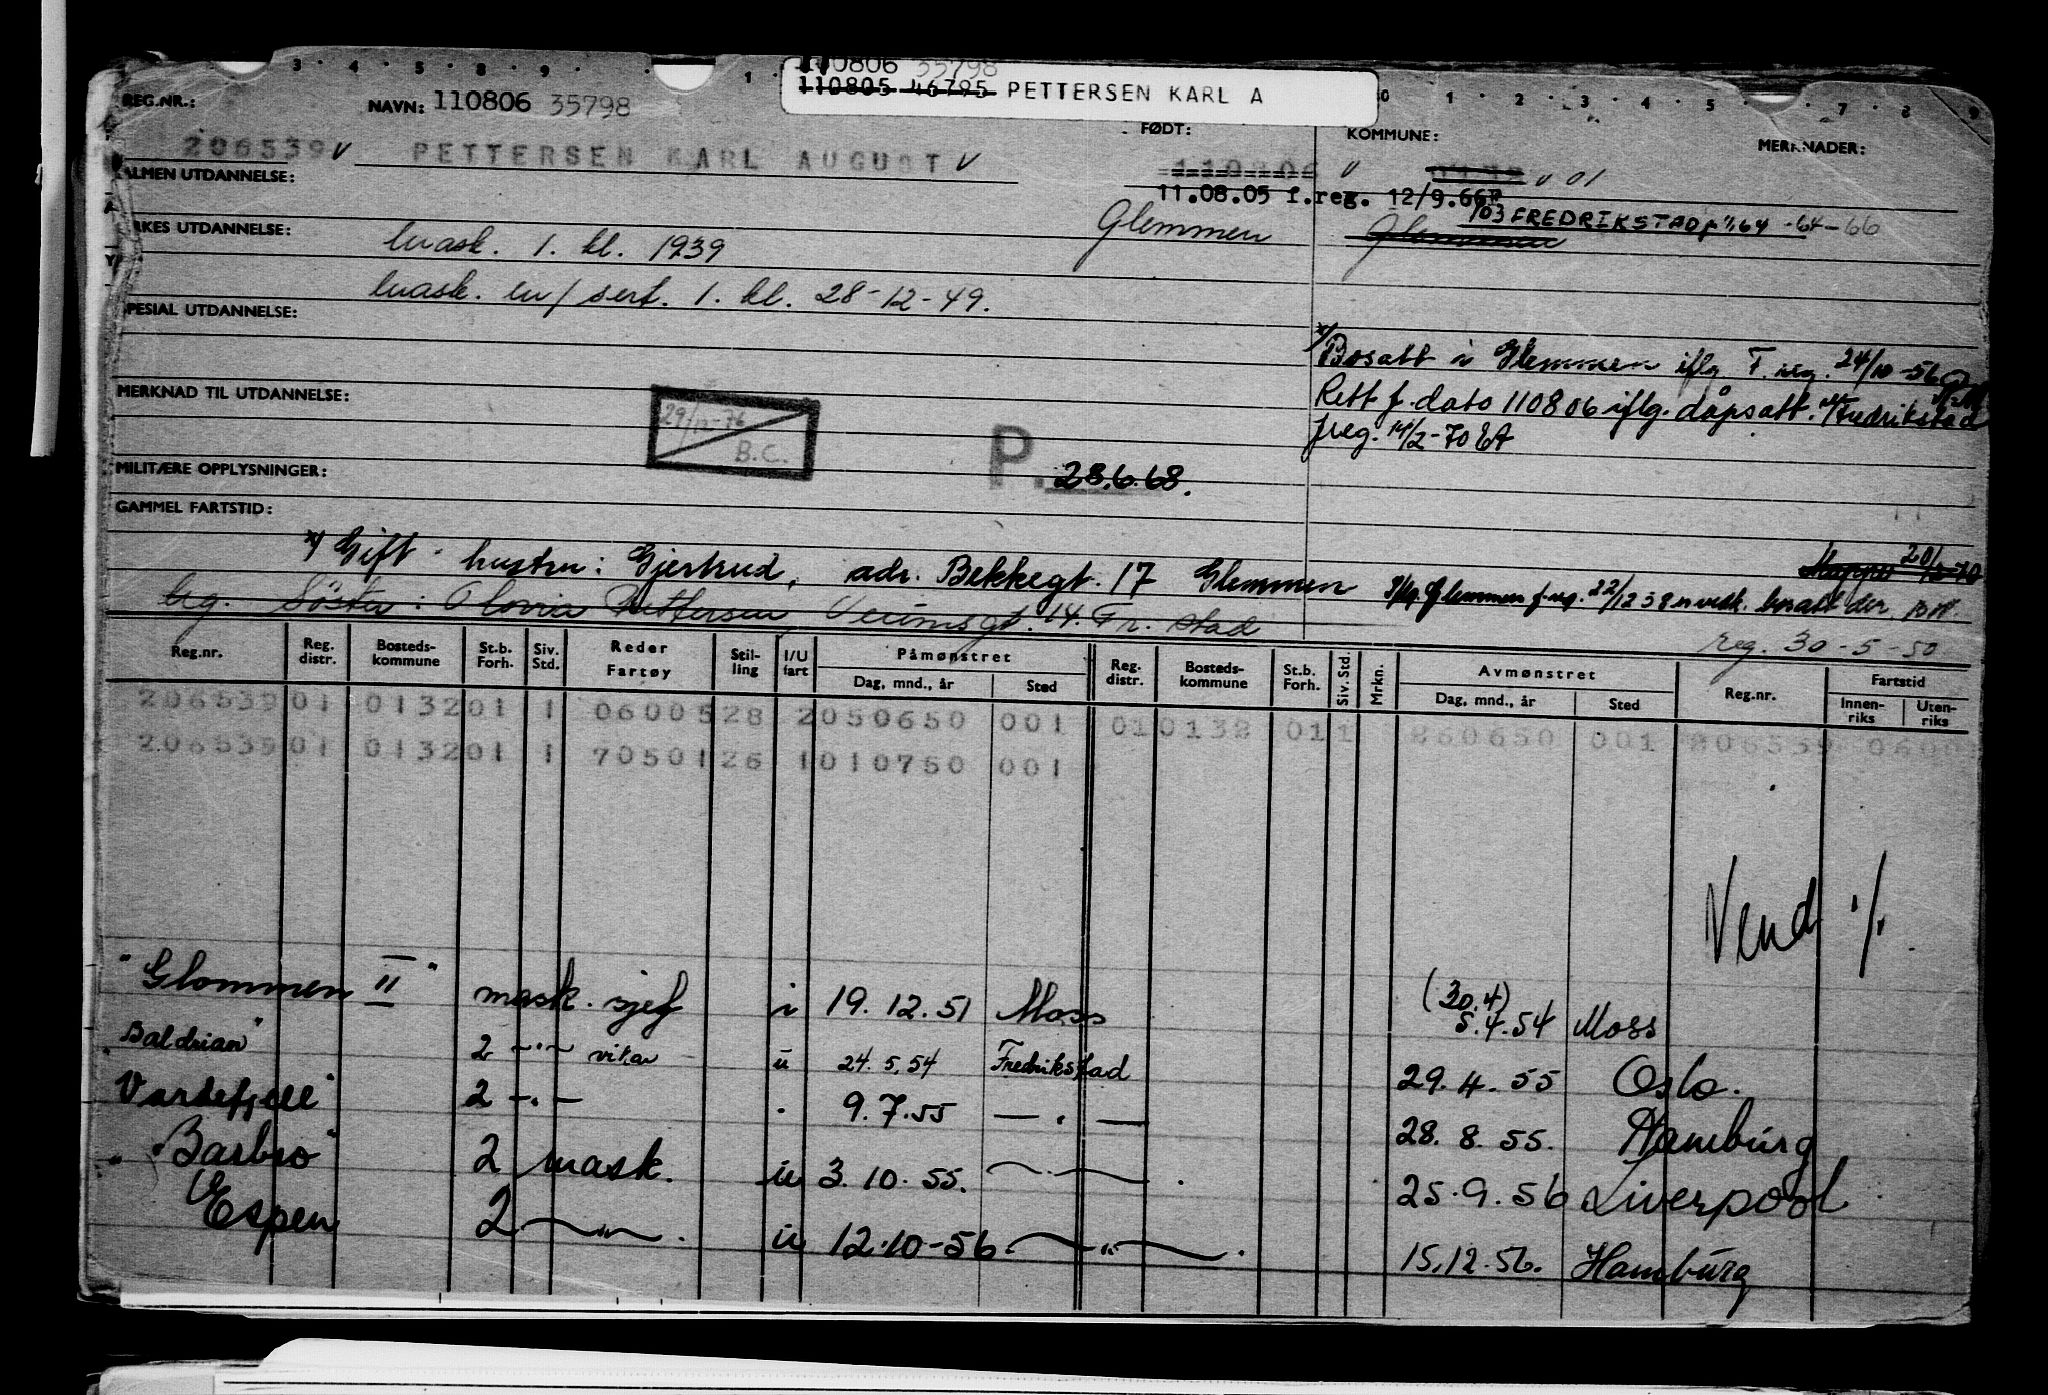 3 4 5 8 9 1 0 1 2 3 4 5 7 8 9
110806 35798
110805 46795 PETTERSEN KARL A
REG.NR.: NAVN: 110806 35798 FØDT: KOMMUNE: MERKNADER:
206539 v PETTERSEN KARL AUGUST v 110806 v v 01
ALMEN UTDANNELSE: 11.08.05 f.reg. 12/9.66
103 FREDRIKSTAD 64-66
YRKES UTDANNELSE: mask. 1. kl. 1939 Glemmen Glemmen
mask. m/ sert. 1. kl. 28-12-49.
SPESIAL UTDANNELSE:
x/ Bosatt i Glemmen iflg. F. reg. 24/10-56
MERKNAD TIL UTDANNELSE: 29/12-76 B.C. Rett f. dato 110806 iflg. dåpsatt. Fredrikstad
P. 28.6.68. freg. 14/2-70 EA
MILITÆRE OPPLYSNINGER:
GAMMEL FARTSTID:
x/ Gift hustru: Gjertrud, adr. Bekkegt. 17 Glemmen Iflg. Glemmen f.reg. 22/12 58 er vedk. bosatt der.
Søster: Pettersen, 14. Fr.stad reg. 30-5-50
Reg.nr. Reg. distr. Bosteds-kommune St.b. Forh. Siv. Std. Reder Fartøy Stil-ling I/U fart Påmønstret Reg. distr. Bosteds-kommune St.b. Forh. Siv. Std. Mrkn. Avmønstret Reg.nr. Fartstid
Dag, mnd., år Sted Dag, mnd., år Sted Innen-riks Uten-riks
206539 01 0132 01 1 06005 28 2 050650 001 01 0132 01 1 260650 001 206539 0600
206539 01 0132 01 1 70501 26 1 010750 001
Vend ./.
"Glommen II" mask. sjef i 19.12.51 Moss (30.4) 5.4.54 Moss
"Baldrian" 2 -"- vikar u 24.5.54 Fredrikstad 29.4.55 Oslo.
"Vardefjell" 2 -"- 9.7.55 -"- 28.8.55. Hamburg
"Barbro" 2 mask. u 3.10.55. -"- 25.9.56 Liverpool
"Espen 2 -"- u 12.10-56 -"- 15.12.56. Hamburg